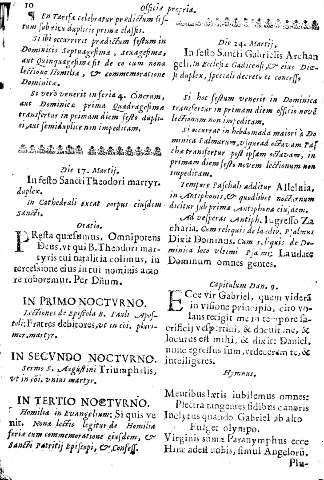 10
Officia propria.
¶ En Tarifa celebratur prædictum fistum sub ritu duplicis primæ classis.
Et ibi occurrerit prædictum festum in
Dominica Septuagesima, sexagesima,
aut Quinquagesima fit de eo cum nona
lectione Homilia, & commemoratione
Dominicæ.
Si verò venerit in feria 4. Cinerum,
aut Dominica prima Quadragesima
transfertur in primam diem sexto duplici, aut semiduplice non impeditam.
Die 17. Martij.
In festo Sancti Theodori martyr.
duplex.
In Cathedrali excat corpus eiusdem
sancti.
Oratio.
PRęsta quæsumus, Omnipotens
Deus, vt qui B. Theodori martyris tui natalicia colimus, in
tercessione eius in tui nominis amo
re roboremur. Per Dñum.
IN PRIMO NOCTVRNO.
Lectiones de Epistola B. Pauli Apostoli; Fratres debitores, vt in cõi, plurimor. martyr.
IN SECVNDO NOCTVRNO.
Sermo S. Augustini Triumphalis,
vt in cõi. vnius martyr.
IN TERTIO NOCTVRNO.
Homilia in Euangelium; Si quis venit, Nona lectio legitur de Homilia
feriæ cum commemoratione eiusdem, &
Sancti Patritij Episcopi, & Confess.
Die 24. Martij.
In festo Sancti Gabrielis Archan
geli. in Ecclesia Gadicensi, & eius Diœsi duplex, speciali decreto ei concesso.
Si hoc festum venerit in Dominica
transfertur in primam diem officio novē
lectionum non impeditam.
Si occurrat in hebdomada maiori à Dominica Palmarum, vsque ad octavam Paschæ transfertur post ipsam octavam, in
primam diem festo novem lectionum non
impeditam.
Tempore Paschali additur Alleluia,
in Antiphonis, & quodlibet nocturnum
dicitur sub prima Antiphona eiusdem.
Ad vesperas Antiph. Ingresso Zacharia. Cum reliqui: de laudib. Psalmus
Dixit Dominus. Cum reliquis de Dominica loco vltimi Psalmi: Laudate
Dominum omnes gentes.
Capitulum Dan. 9.
ECce vir Gabriel, quem viderā
in visione principio, cito volans tetigit me in tempore sacrificij vespertini, & docuit me, &
locutus est mihi, & dixit: Daniel,
nunc egressus sum, vt docerem te, &
intelligeres.
Hymnus.
Mentibus lætis iubilemus omnes:
Plectra tangentes fidibus canoris
Inclytus quando Gabriel ab alto
Fulget olympo.
Virginis summæ Paranymphus ecce
Hinc adest nobis, simul Angelorū.
Plu-